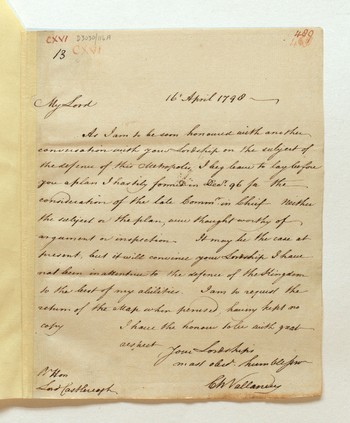 CXVI
13
CXVI
16 April 1798
My Lord
As I am to be soon honoured with another
conversation with your Lordship on the subject of
the defence of this Metropolis, I beg leave to lay before
you a plan I hastily formed in Decr. 96 for the
consideration of the late Commr. in Chief. Neither
the subject or the plan, were thought worthy of
argument or inspection. It may be the case at
present, but it will convince your Lordship I have
not been inattentive to the defence of the Kingdom
to the best of my abilities. I am to request the
return of the Map when perused having kept no
copy
I have the honour to be with great
respect
Your Lordships
most obedt. humble servt.
Ch Vallancey
Rt. Hon
Lord Castlereagh